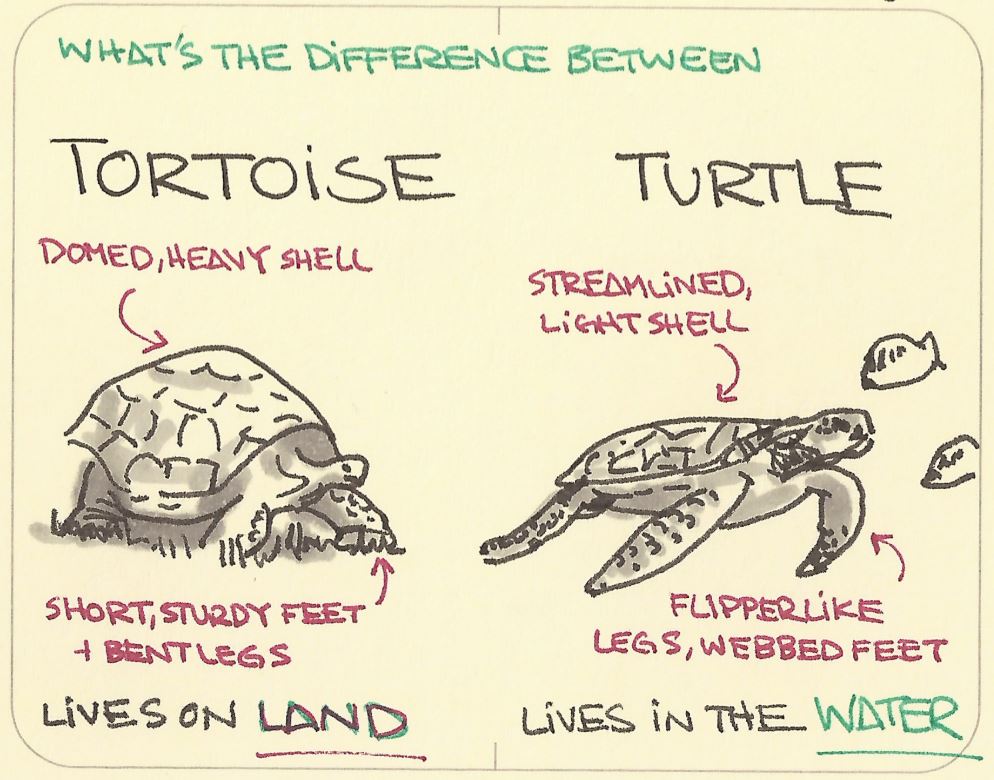 WHAT'S THE DIFFERENCE BETWEEN
TORTOISE
DOMED, HEAVY SHELL
SHORT, STURDY FEET
+ BENT LEGS
LIVES ON LAND
TURTLE
STREAMLINED,
LIGHT SHELL
FLIPPERLIKE
LEGS, WEBBED FEET
LIVES IN THE WATER